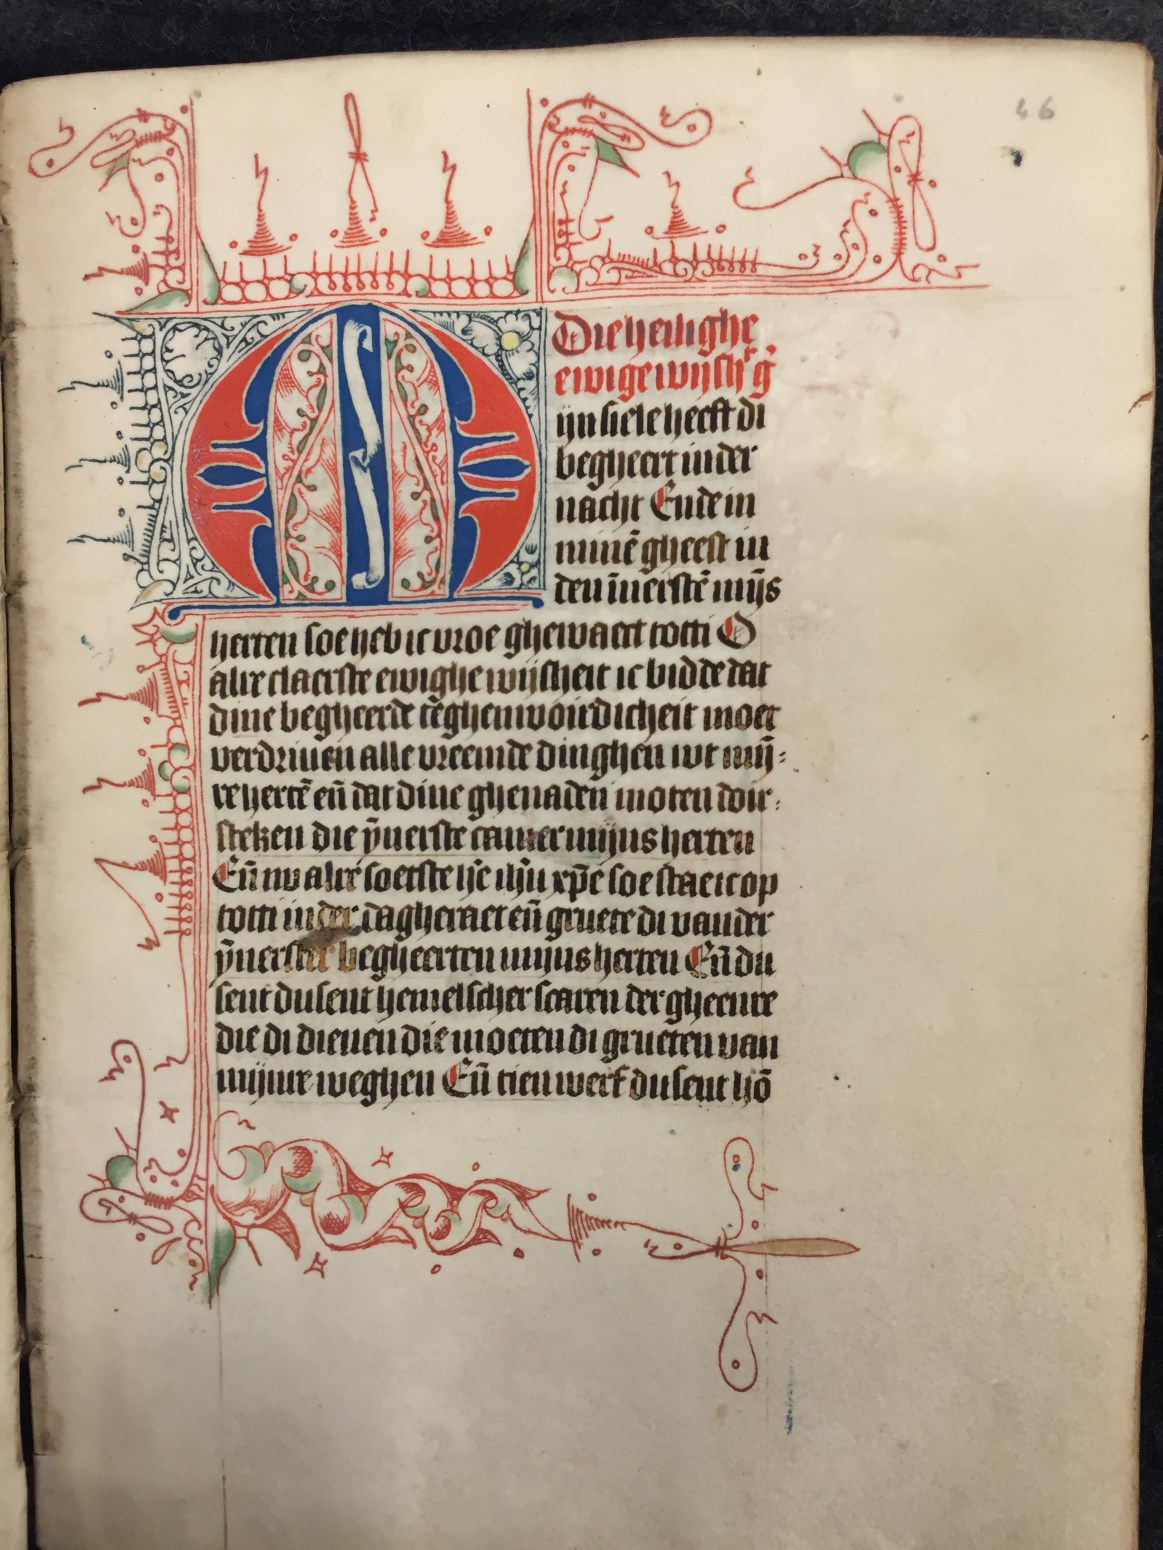 46
Die heilighe
ewige wijsh' g.
M
ijn siele heeft di
begheert in der
nacht Ende in
minē gheest in
den īnerstē mijs
herten soe heb ic vroe ghewaect totti O
alre claerste ewighe wijsheit ic bidde dat
dine begheerde tēghenwoirdicheit moet
verdriuen alle vreemde dinghen wt mij̄-
re hertē eñ dat dine ghenaden moten doir-
steken die ȳnerste camer mijns herten
Eñ nv alre soetste hē ihū xpē soe stae ic op
totti in der dagheraet eñ gruete di vander
ȳnerster begheerten mijns herten Eñ du
sent dusent hemelscher scaren der gheenre
die di dienen die moeten di grueten van
mijnre weghen Eñ tien werf dusent hō